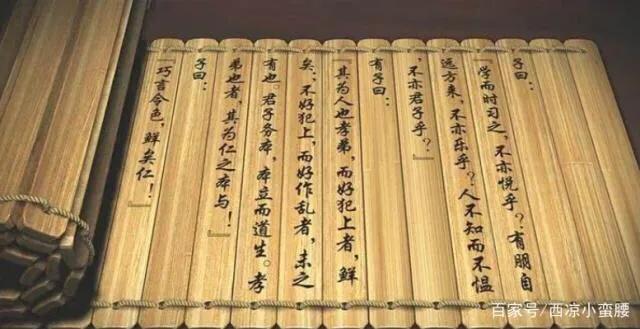 子曰：
『学而时习之，不亦悦乎？有朋自
远方来，不亦乐乎？人不知而不愠
，不亦君子乎？』
有子曰：
『其为人也孝弟，而好犯上者，鲜
矣；不好犯上，而好作乱者，未之
有也。君子务本，本立而道生。孝
弟也者，其为仁之本与！』
子曰：
『巧言令色，鲜矣仁！』
百家号/西凉小蛮腰